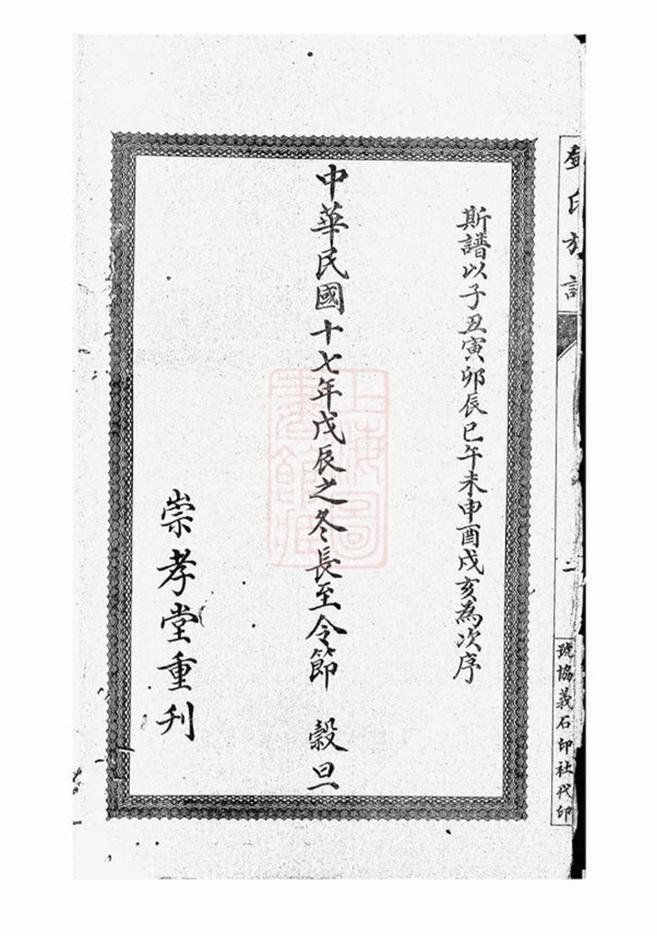 氏族譜
二
號協義石印社代印
斯譜以子丑寅卯辰巳午未申酉戌亥為次序
中華民國十七年戊辰之冬長至令節 穀旦
崇孝堂重刋
上海圖書館藏